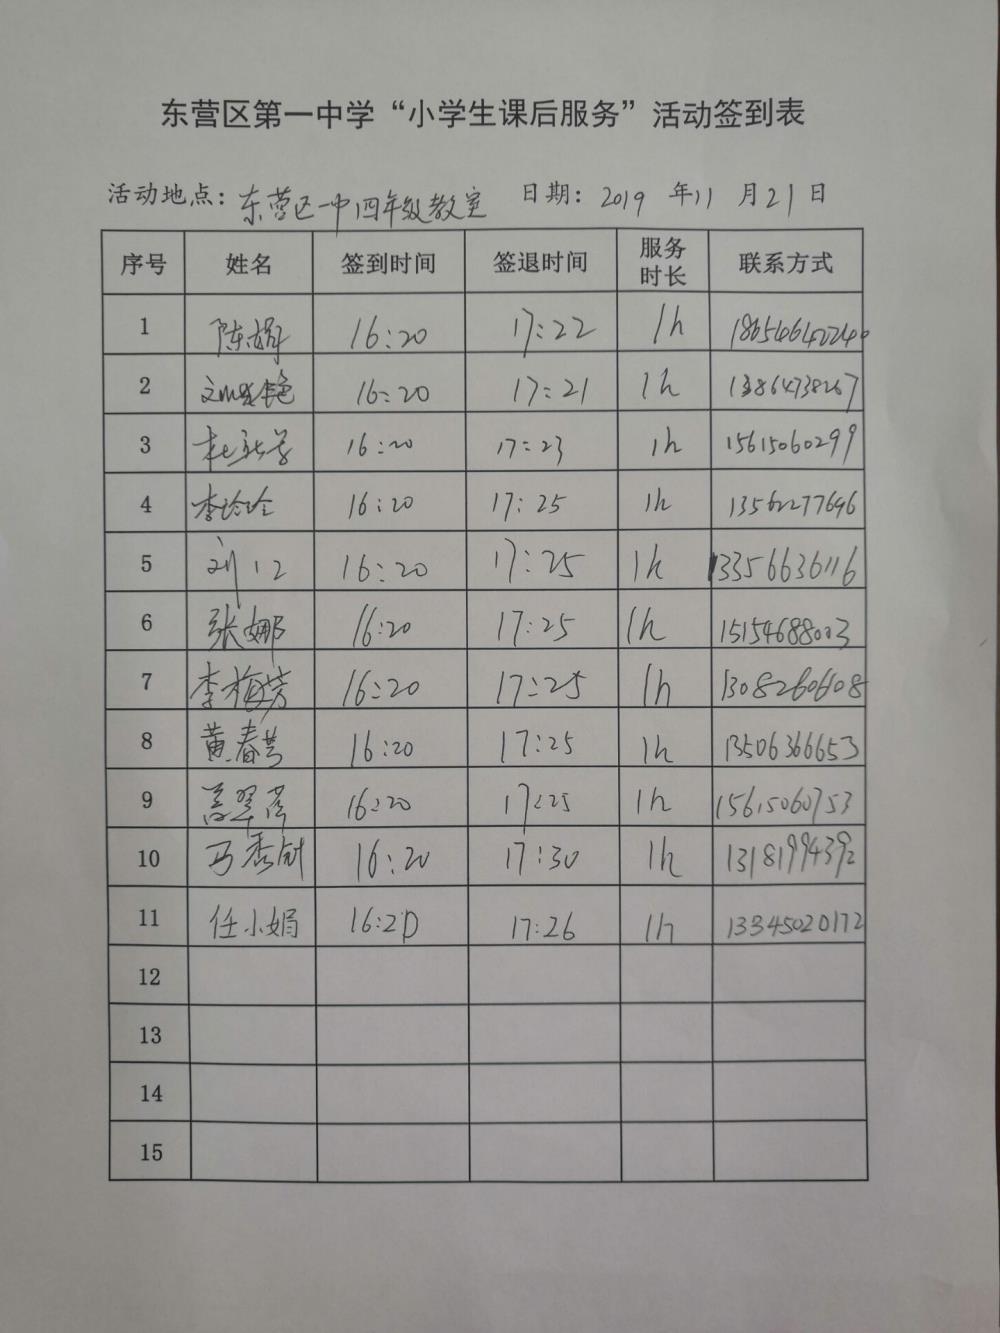 东营区第一中学“小学生课后服务”活动签到表
活动地点：东营区一中四年级教室 日期：2019 年 11 月 21 日
序号 姓名 签到时间 签退时间 服务时长 联系方式
1 陈娟 16:20 17:22 1h
2 16:20 17:21 1h 13864738267
3 16:20 17:23 1h 15615060299
4 李玲玲 16:20 17:25 1h 13562277696
5 16:20 17:25 1h 13356636116
6 张娜 16:20 17:25 1h 15154688003
7 李梅芳 16:20 17:25 1h 13082606608
8 黄春芳 16:20 17:25 1h 13506366653
9 16:20 17:25 1h 15615060753
10 马秀剑 16:20 17:30 1h 13181994392
11 任小娟 16:20 17:26 1h 13345020172
12
13
14
15